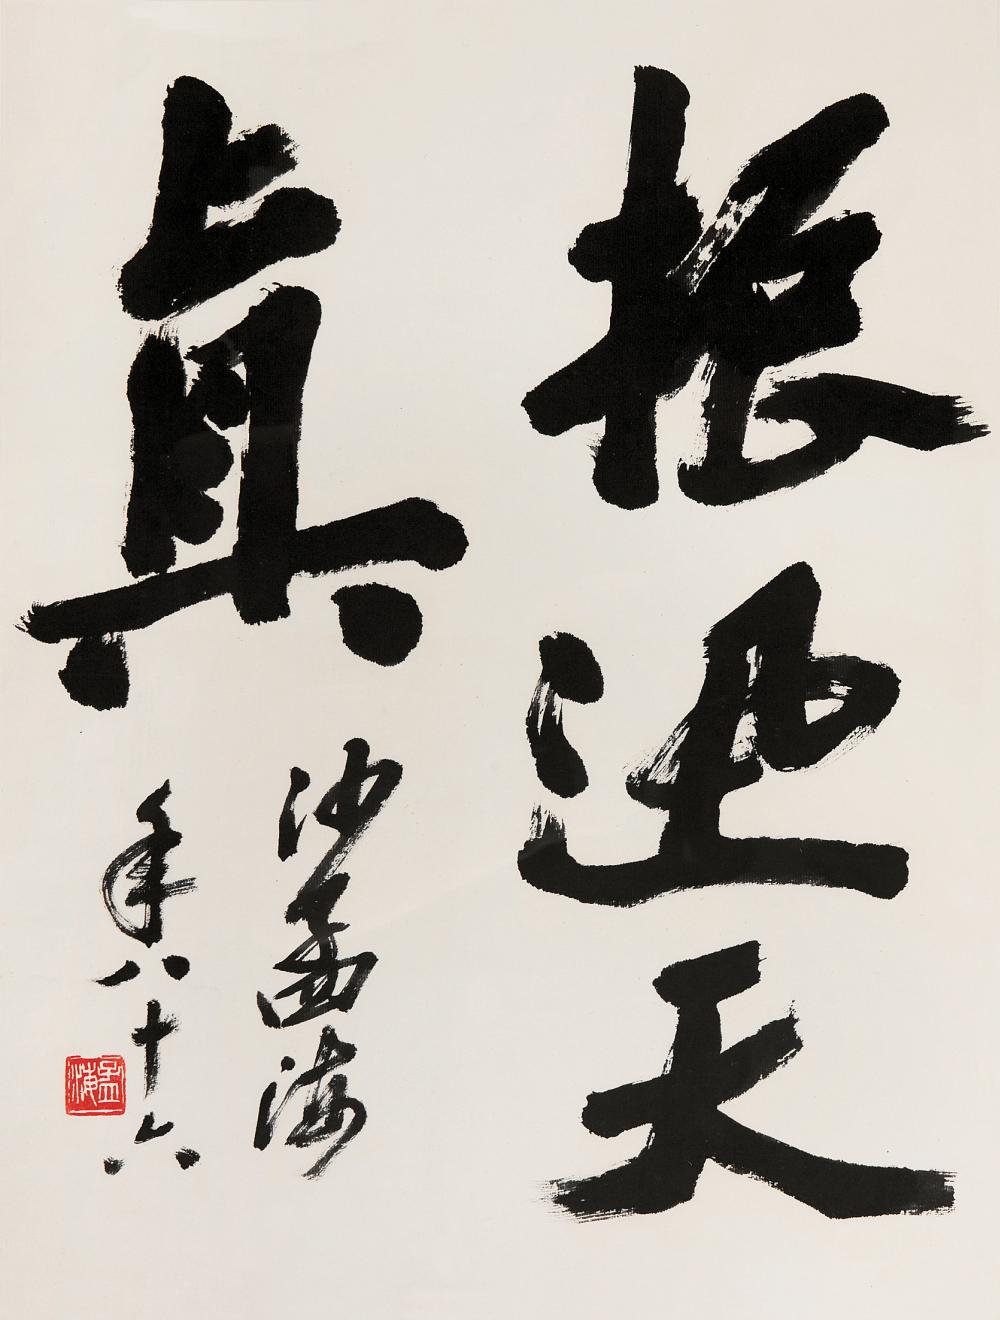 振迅天
真
沙孟海
年八十六
孟海